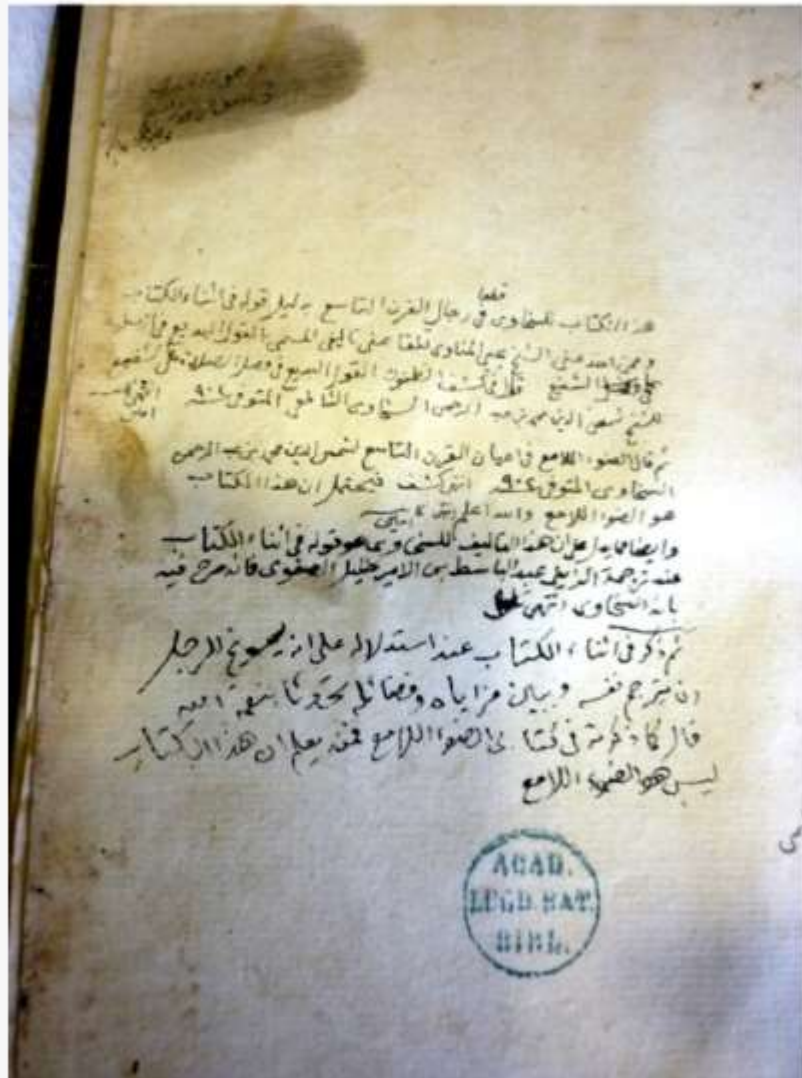 قطعا
هذا الكتاب للسخاوى في رجال القرن التاسع بدليل قوله في اثناء الكتاب
وممن اخذ عنى الشيخ عبد المناوى تاليفى المسمى بالقول البديع في
قال في كشف الظنون القول البديع في الصلاة على الشفيع
للشيخ شمس الدين محمد بن عبد الرحمن السخاوى الشافعى المتوفى ٩٠٢ انتهى
ثم قال الضوء اللامع في اعيان القرن التاسع لشمس الدين محمد بن عبد الرحمن
السخاوى المتوفى ٩٠٢ انتهى كشف فيحتمل ان هذا الكتاب
هو الضوء اللامع والله اعلم
وايضا مما يدل على ان هذا التاليف للسخاوى هو قوله في اثناء الكتاب
عند ترجمة الزينى عبد الباسط بن الامير خليل الصفوى فانه صرح فيه
بانه السخاوى انتهى
ثم ذكر في اثناء الكتاب عند استدلاله على انه يسوغ الرجل
ان يترجم نفسه وبيان مزاياه وفضائله تحدثا بنعمة الله
قال كما ذكرته في كتابى الضوء اللامع فمنه يعلم ان هذا الكتاب
ليس هو الضوء اللامع
ACAD.
LUGD. BAT.
BIBL.